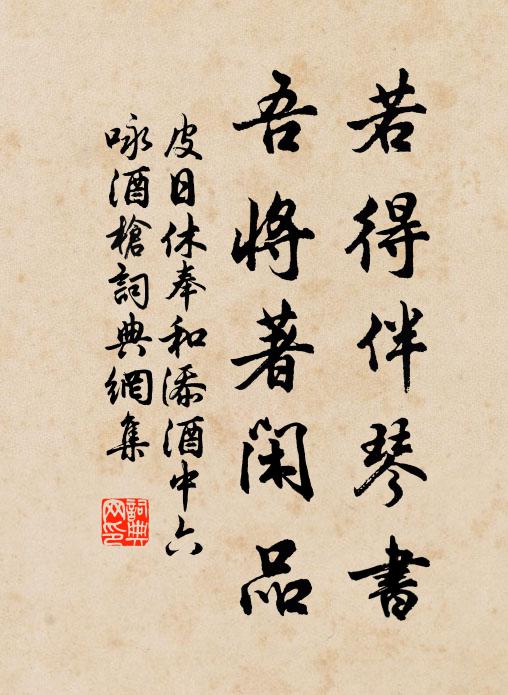 若得伴琴書
吾將著閑品
皮日休奉和添酒中六
咏酒槍詞典網集
詞典
网印